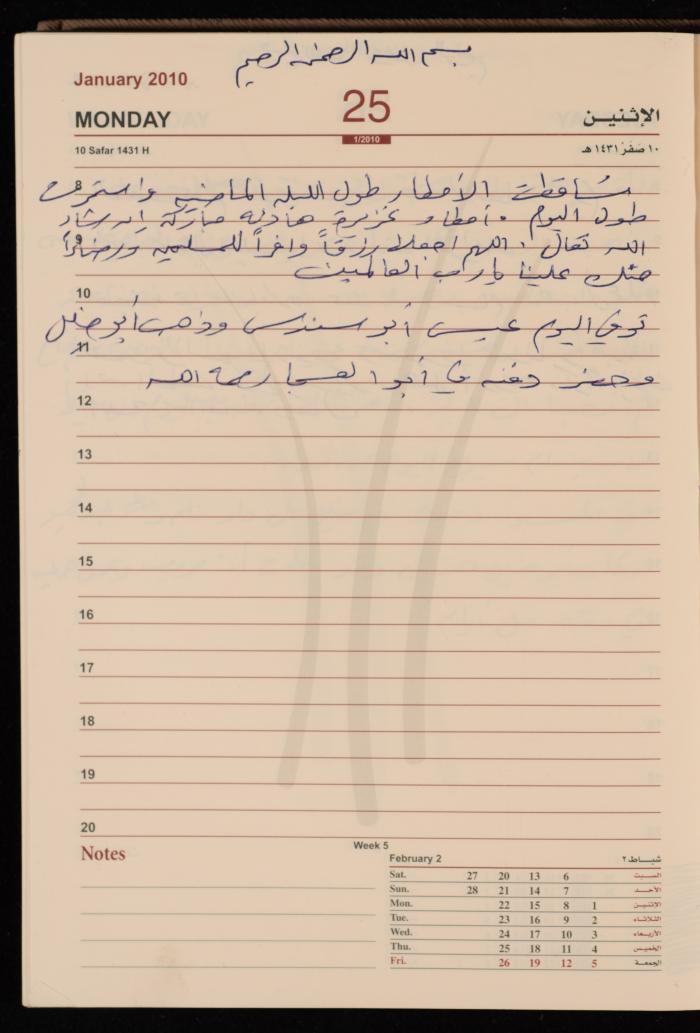 بسم الله الرحمن الرحيم
January 2010
MONDAY 25 الإثنين
10 Safar 1431 H 1/2010 ١٠ صَفَرْ ١٤٣١ هـ
8 تساقطت الأمطار طول الليله الماضيه واستمرت
طول اليوم . أمطار غزيرة هادئه مباركة إن شاء
9 الله تعالى . اللهم اجعلها رزقاً وافراً للمسلمين
منك علينا يا رب العالمين
10
توفي اليوم عيسى أبو سندس وذهب أبو
11
وحضر دفنه في أبو رحمه الله
12
13
14
15
16
17
18
19
20
Notes
Week 5
February 2 شباط ٢
Sat. 27 20 13 6 السبت
Sun. 28 21 14 7 الأحد
Mon. 22 15 8 1 الإثنين
Tue. 23 16 9 2 الثلاثاء
Wed. 24 17 10 3 الأربعاء
Thu. 25 18 11 4 الخميس
Fri. 26 19 12 5 الجمعة